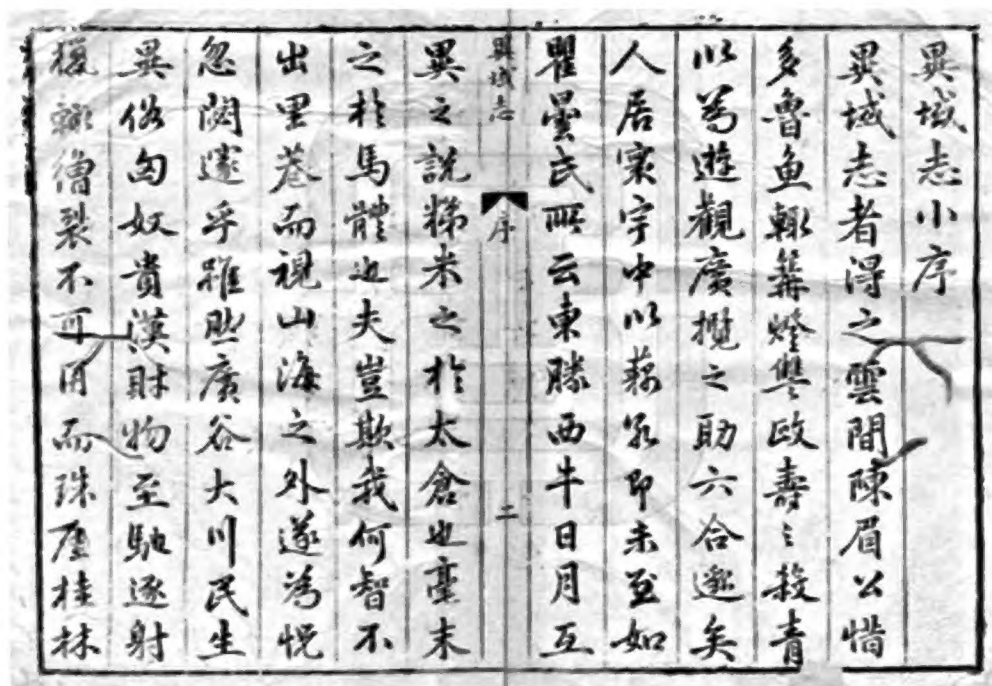 異域志小序
異域志者得之雲間陳眉公惜
多魯魚輙篝燈讐政壽之殺青
以為遊觀廣攬之助六合邈矣
人居寰宇中以藐即未至如
瞿曇氏所云東勝西牛日月互
異域志 序 二
異之說稊米之於太倉也毫末
之於馬體也夫豈欺我何智不
出里巷而視山海之外遂為怳
忽闊遼乎雖然廣谷大川民生
異俗匈奴貴漢財物至馳逐射
輙繒裂不可用而珠厓桂林